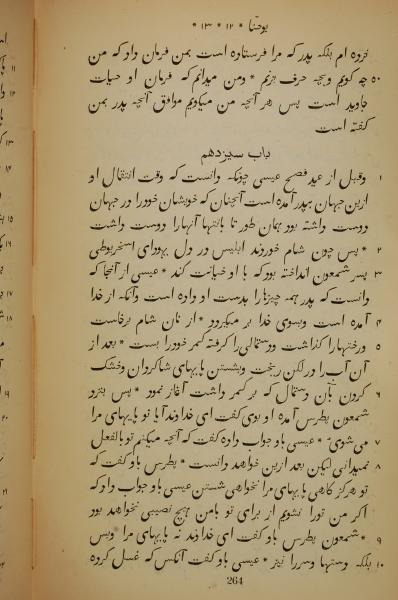 یوحنّا * ۱۲ * ۱۳ *
کرده ام بلکه پدر که مرا فرستاده است بمن فرمان داد که من
۵۰ چه گویم و بچه حرف زنم * و من میدانم که فرمان او حیات
جاوید است پس هر آنچه من میگویم موافق آنچه پدر بمن
گفته است
باب سیزدهم
۱ و قبل از عید فصح عیسی چونکه دانست که وقت انتقال او
ازین جهان بپدر آمده است آنچنان که خویشان خود را در جهان
دوست داشته بود همان طور تا بانتها آنها را دوست داشت
۲ * پس چون شام خوردند ابلیس در دل یهودای اسخریوطی
۳ پسر شمعون انداخته بود که با او خیانت کند * عیسی از آنجا که
دانست که پدر همه چیزها را بدست او داده است و آنکه از خدا
۴ آمده است و بسوی خدا بر میگردد * از نان شام برخاست
۵ و رختها را گذاشت و دستمالی را گرفته کمر خود را بست * بعد از
آن آب را در لگن ریخت و بشستن پایهای شاگردان و خشک
۶ کردن بآن دستمال که بر کمر داشت آغاز نمود * پس بنزد
شمعون پطرس آمده او بوی گفت ای خداوند آیا تو پایهای مرا
۷ می شوئی * عیسی باو جواب داده گفت که آنچه میکنم تو بالفعل
۸ نمیدانی لیکن بعد ازین خواهد دانست * پطرس باو گفت که
تو هرگز گاهی پایهای مرا نخواهی شستن عیسی باو جواب داد که
اگر من تو را نشویم از برای تو با من هیچ نصیبی نخواهد بود
۹ * شمعون پطرس باو گفت ای خداوند نه پایهای مرا و بس
۱۰ بلکه دستها و سر را نیز * عیسی باو گفت آنکس که غسل کرده
264